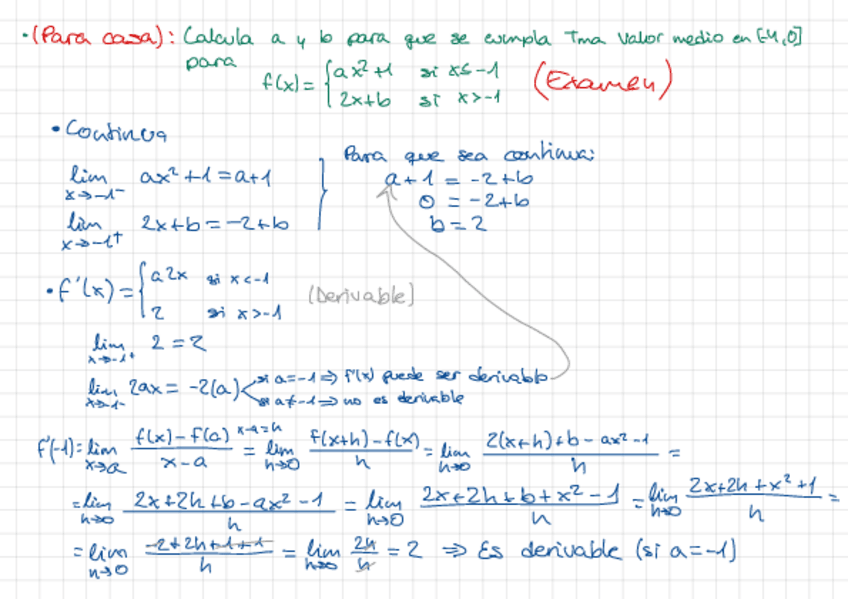 ·(Para casa): Calcula a y b para que se cumpla Tma Valor medio en [-4,0]
para
f(x) = { ax²+1 si x≤-1
2x+b si x>-1
(Examen)
• Continua
lim x→-1⁻ ax²+1 = a+1
lim x→-1⁺ 2x+b = -2+b
Para que sea continua:
a+1 = -2+b
0 = -2+b
b = 2
• f'(x) = { a2x si x<-1
2 si x>-1
(Derivable)
lim x→-1⁺ 2 = 2
lim x→-1⁻ 2ax = -2(a)
si a=-1 ⇒ f'(x) puede ser derivable
si a≠-1 ⇒ no es derivable
f'(-1) = lim x→a (f(x)-f(a))/(x-a) x-a=h = lim h→0 (f(x+h)-f(x))/h = lim h→0 (2(x+h)+b-ax²-1)/h =
= lim h→0 (2x+2h+b-ax²-1)/h = lim h→0 (2x+2h+b+x²-1)/h = lim h→0 (2x+2h+x²+1)/h =
= lim h→0 (-2+2h+1+1)/h = lim h→0 2h/h = 2 ⇒ Es derivable (si a=-1)